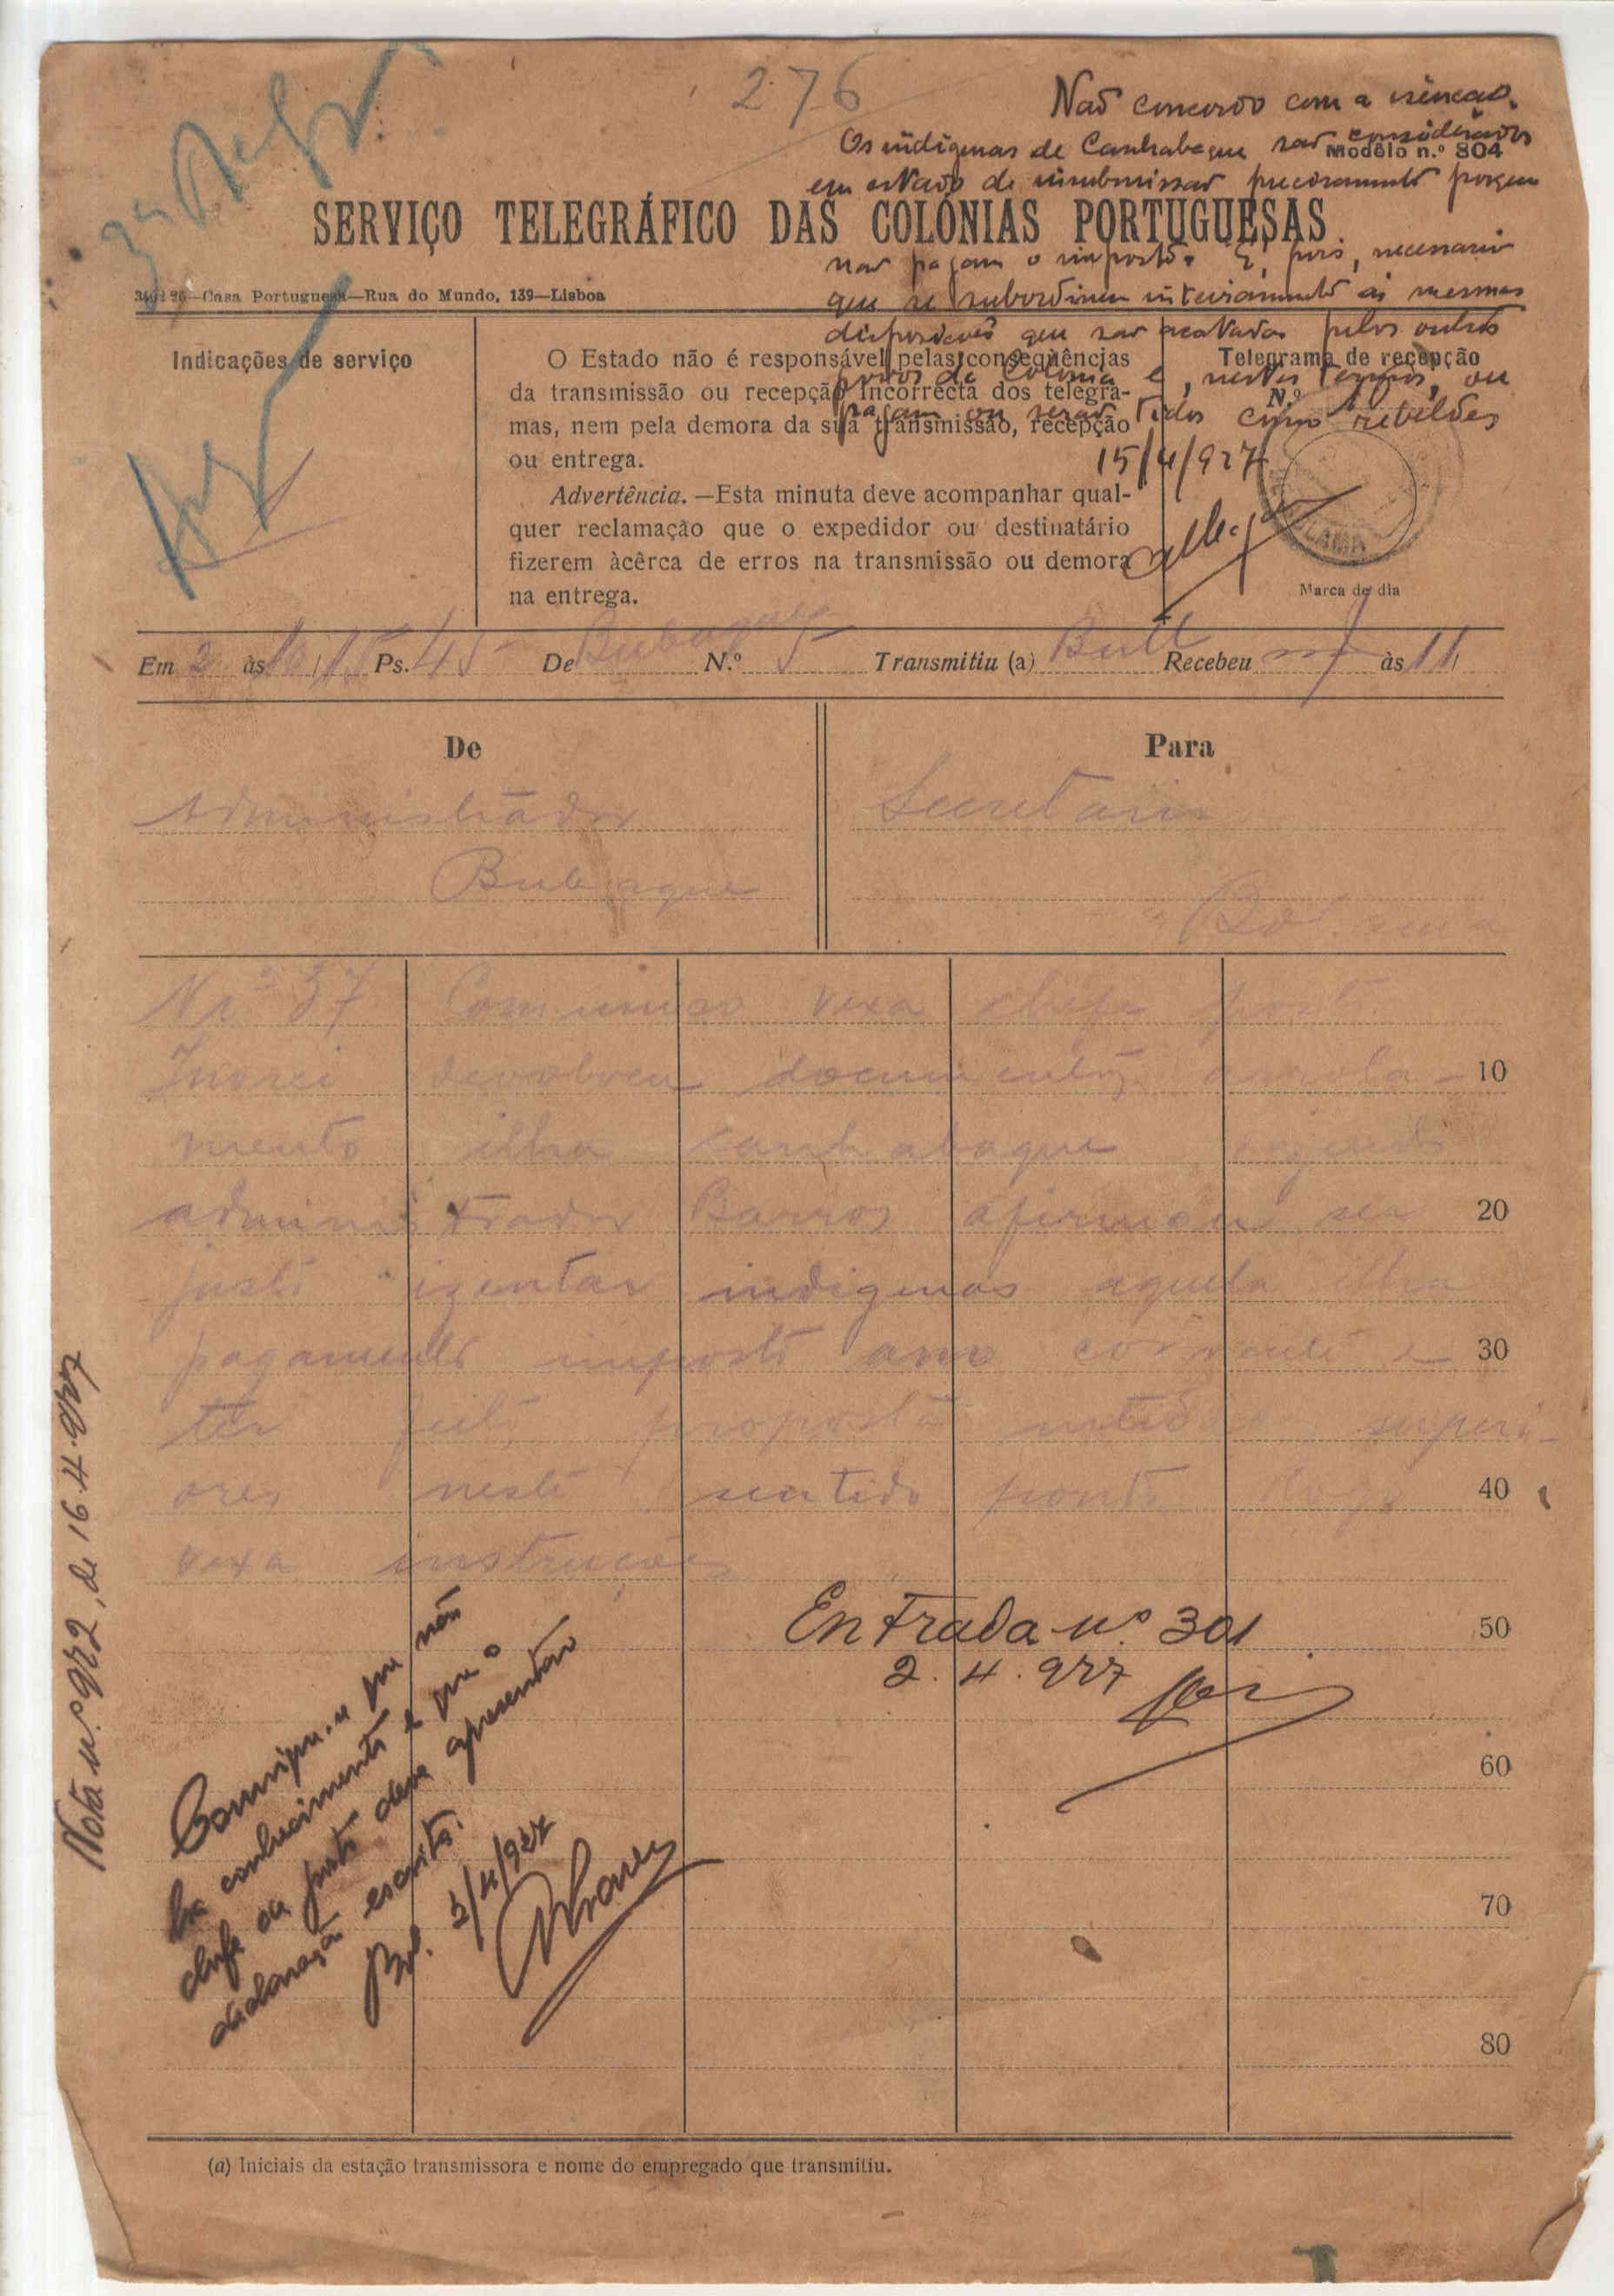 276
3ª Repº
Não concordo com a isenção.
Os indigenas de Canhabaque são considerados
Modêlo n.º 804
em estado de insubmissão precisamente porque
SERVIÇO TELEGRÁFICO DAS COLÓNIAS PORTUGUESAS
não pagam o imposto. É, pois, necessario
Casa Portuguesa—Rua do Mundo, 139—Lisboa
que se subordinem inteiramente ás mesmas
disposições que são acatadas pelos outros
povos da Colonia e, nestes termos, ou
pagam ou serão tidos como rebeldes
15/4/927
Indicações de serviço
O Estado não é responsável pelas conseqüências
da transmissão ou recepção incorrecta dos telegra-
mas, nem pela demora da sua transmissão, recepção
ou entrega.
Advertência.—Esta minuta deve acompanhar qual-
quer reclamação que o expedidor ou destinatário
fizerem àcêrca de erros na transmissão ou demora
na entrega.
Telegrama de recepção
N.º
LAMA
Marca de dia
Em 2 às 10/15 Ps. 45 De Bubaque N.º 5 Transmitiu (a) Bull Recebeu às 11/
De
Para
Administrador
Secretario
Bubaque
Bolama
Nº 37 Comunico vexa chefe posto
Inorei devolveu documentos arrola- 10
mento ilha canhabaque
administrador Barros afirmou ser 20
justo izentar indigenas aquela ilha
pagamento imposto ano corrente e 30
ter feito proposta superi-
ores neste sentido ponto Rogo 40
vexa instruções
Entrada nº 301
50
2.4.927
60
70
80
Comunique-se que não
ha conhecimento e que o
chefe do posto deve apresentar
declaração escrita.
Bol. 2/4/927
Nota nº 972, de 16.4.927
(a) Iniciais da estação transmissora e nome do empregado que transmitiu.